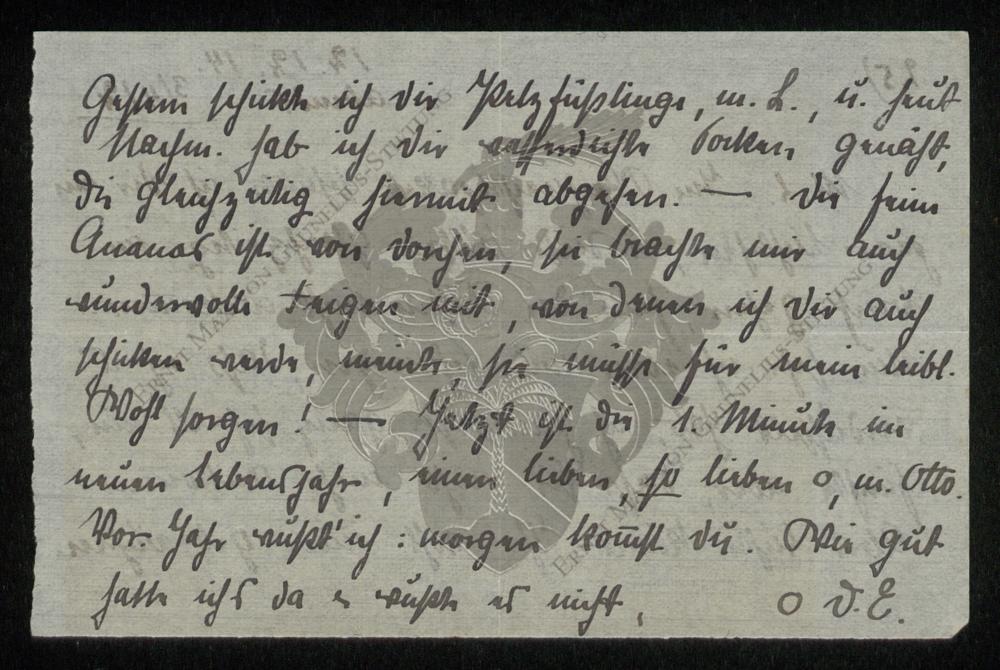 Gestern schickte ich dir Pelzfüßlinge, m. L., u. heut
Nachm. hab ich dir wasserdichte Socken genäht,
die gleichzeitig hiermit abgehen. — Die feine
Ananas ist von Dorchen, sie brachte mir auch
wundervolle Feigen mit, von denen ich dir auch
schicken werde, meinte, sie müsse für mein leibl.
Wohl sorgen! — Jetzt ist die 1. Minute im
neuen Lebensjahr, einen lieben, so lieben o, m. Otto.
Vor. Jahr wußt' ich: morgen kommst du. Wie gut
hatte ichs da u wußte es nicht.
o D. E.
ERNST MAX VON GRUNELIUS-STIFTUNG